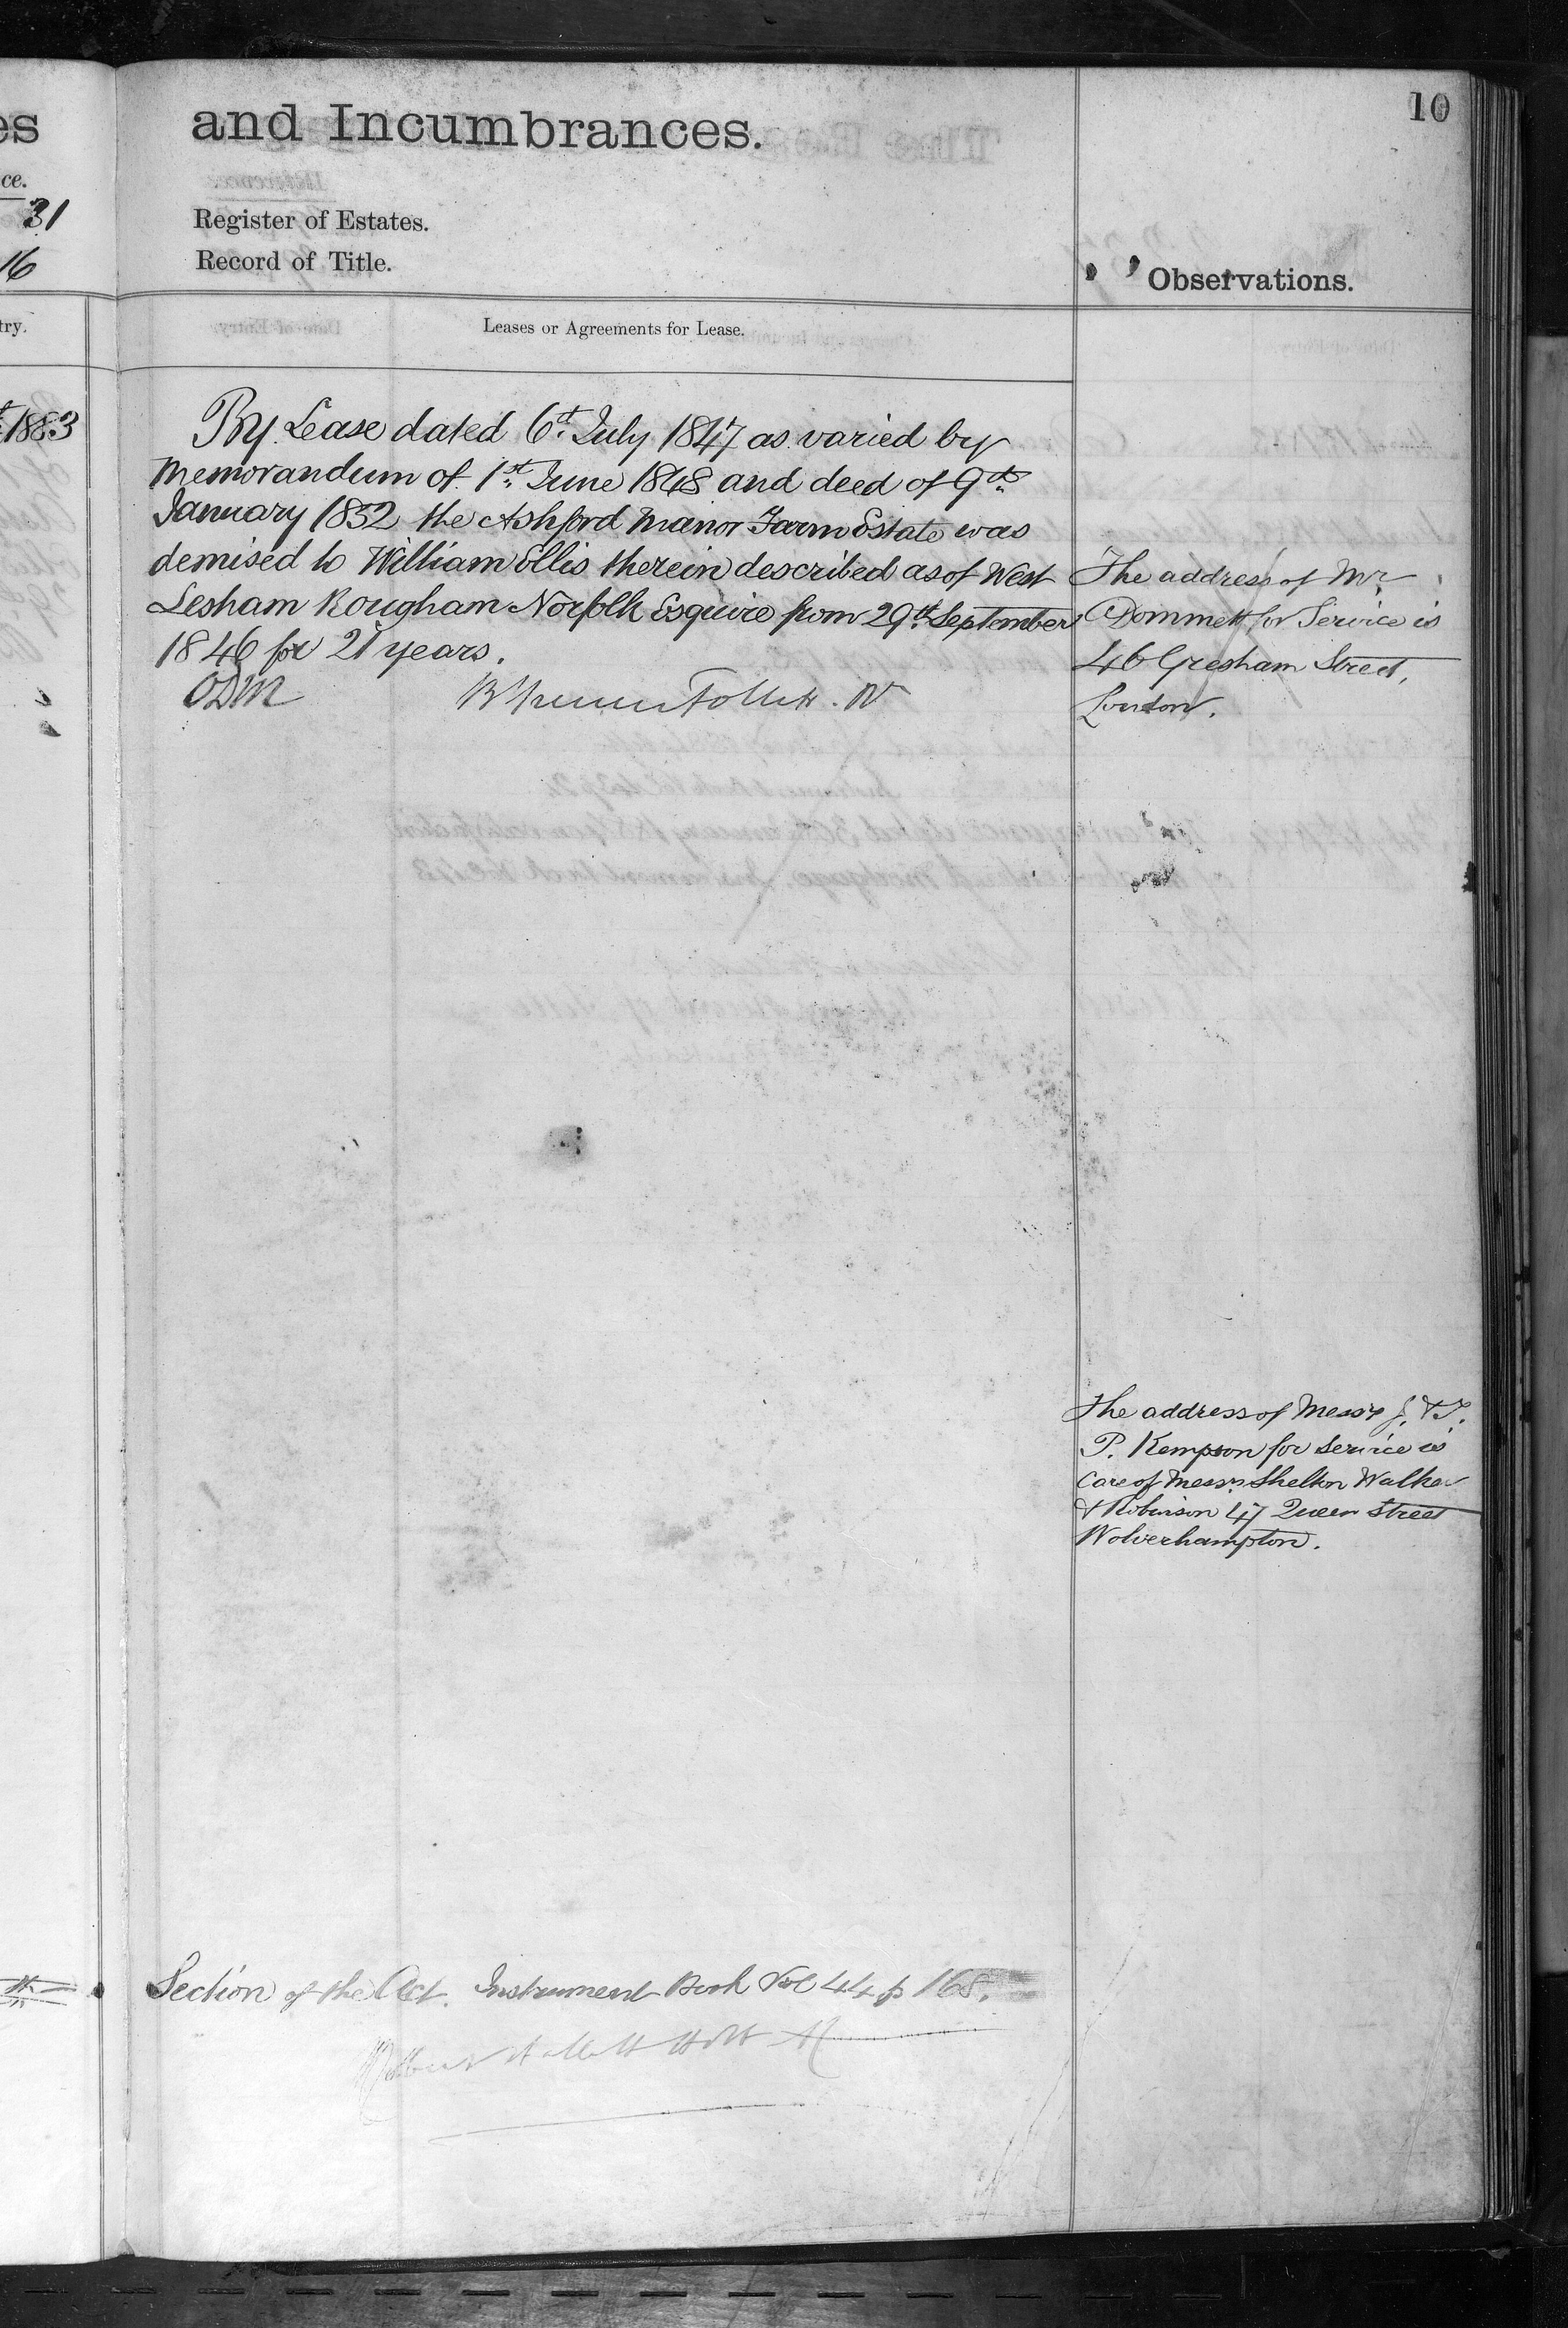 es
ce.
31
16
try.
1883
10
and Incumbrances.
Register of Estates.
Record of Title.
Observations.
Leases or Agreements for Lease.
By Lease dated 6th July 1847 as varied by
Memorandum of 1st June 1848 and deed of 9th
January 1852 the Ashford Manor Farm Estate was
demised to William Ellis therein described as of West
Lesham Rougham Norfolk Esquire from 29th September
1846 for 21 years.
The address of Mr.
Dommett for Service is
46 Gresham Street,
London.
The address of Messrs J. & T.
P. Kempson for Service is
Care of Messrs. Shelton Walker
& Robinson 47 Queen Street
Wolverhampton.
Section of the Act. Instrument Book Vol 44 p 168.